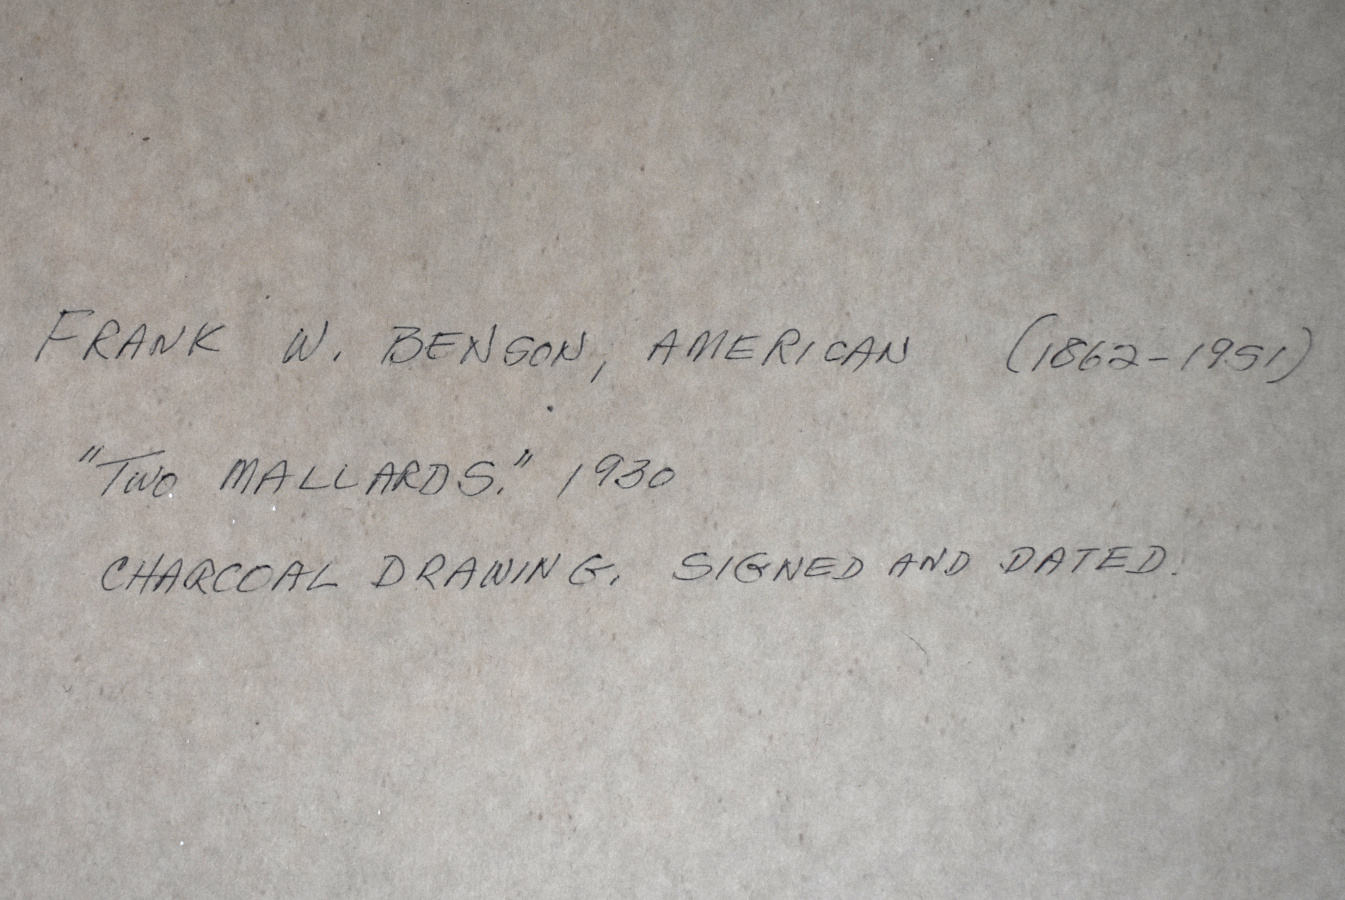 FRANK W. BENSON, AMERICAN (1862-1951)
"TWO MALLARDS." 1930
CHARCOAL DRAWING. SIGNED AND DATED.